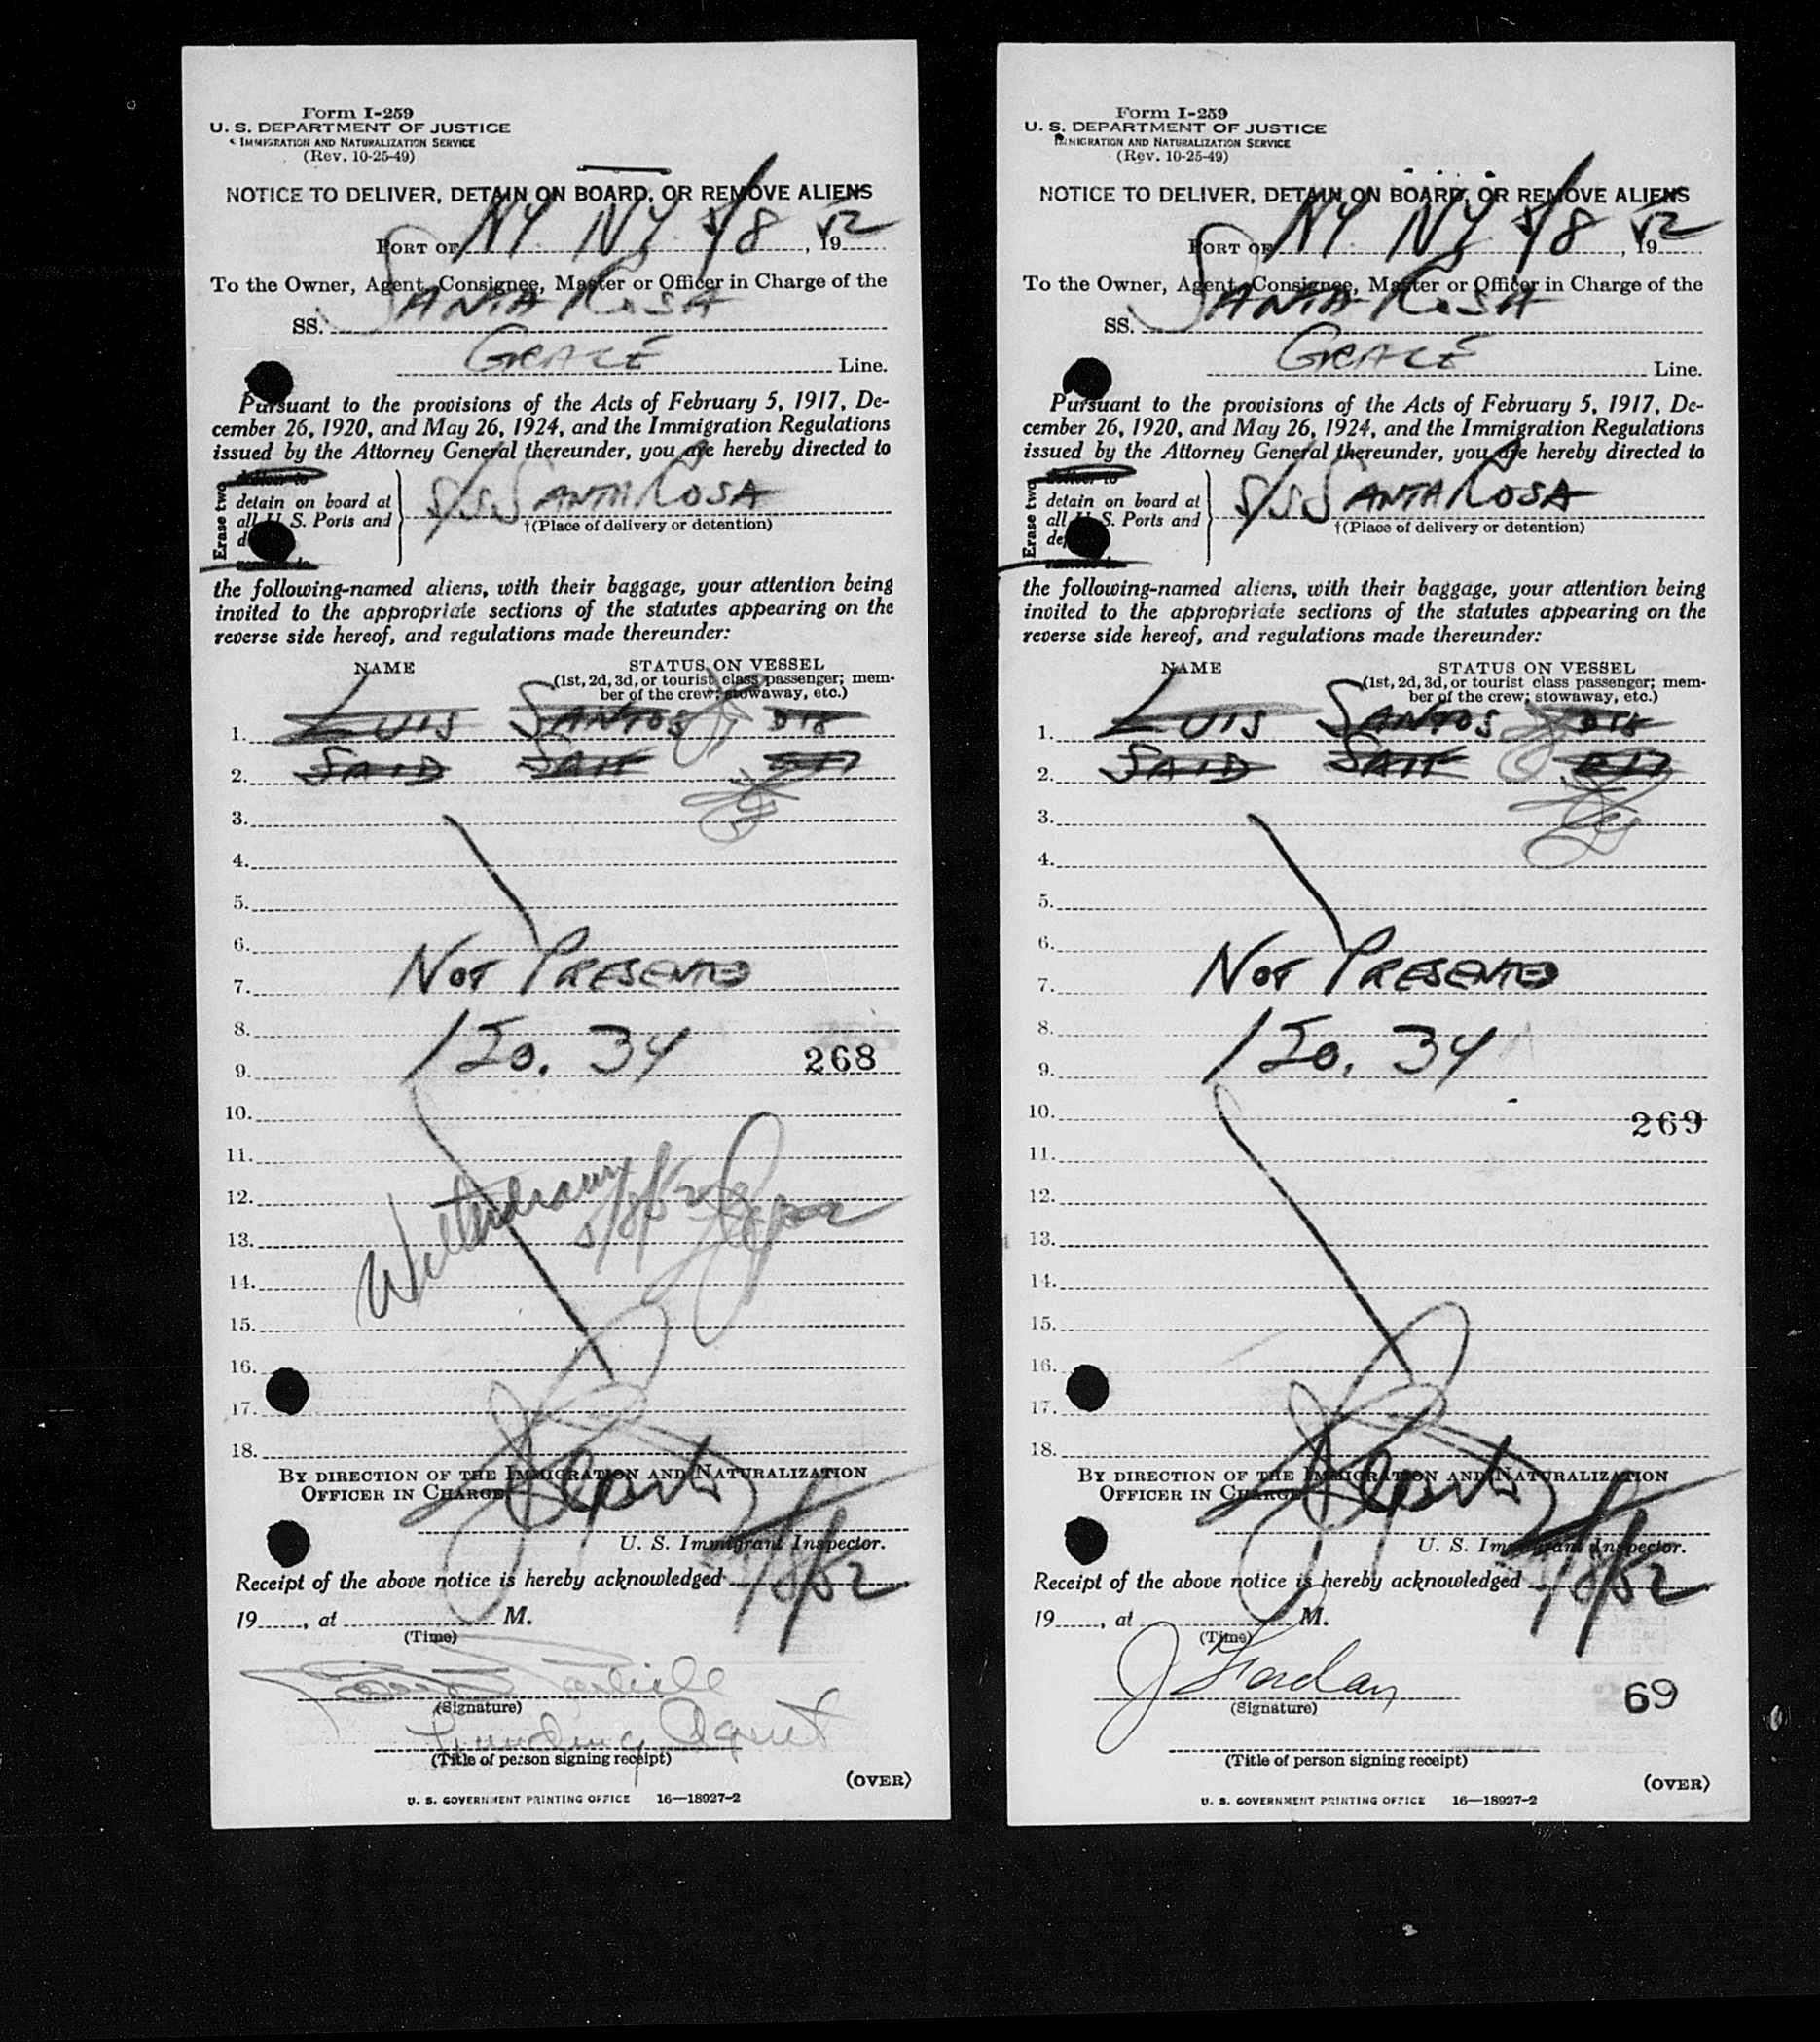 Form I-259
U. S. DEPARTMENT OF JUSTICE
IMMIGRATION AND NATURALIZATION SERVICE
(Rev. 10-25-49)
NOTICE TO DELIVER, DETAIN ON BOARD, OR REMOVE ALIENS
PORT OF NY NY 5/8, 1952
To the Owner, Agent, Consignee, Master or Officer in Charge of the
SS. SANTA ROSA
GRACE Line.
Pursuant to the provisions of the Acts of February 5, 1917, De-
cember 26, 1920, and May 26, 1924, and the Immigration Regulations
issued by the Attorney General thereunder, you are hereby directed to
Erase two
deliver to
detain on board at
all U. S. Ports and
remove to
S/S SANTA ROSA
†(Place of delivery or detention)
the following-named aliens, with their baggage, your attention being
invited to the appropriate sections of the statutes appearing on the
reverse side hereof, and regulations made thereunder:
NAME STATUS ON VESSEL
(1st, 2d, 3d, or tourist class passenger; mem-
ber of the crew; stowaway, etc.)
1. LUIS SANTOS
2. SAID SAIF
3.
4.
5.
6.
7. NOT PRESENTED
8.
9. 120. 34 268
10.
11.
12. Withdrawn 5/8/52
13.
14.
15.
16.
17.
18.
BY DIRECTION OF THE IMMIGRATION AND NATURALIZATION
OFFICER IN CHARGE
U. S. Immigrant Inspector.
Receipt of the above notice is hereby acknowledged 5/8/52
19, at M.
(Time)
(Signature)
Agent
(Title of person signing receipt)
(OVER)
U. S. GOVERNMENT PRINTING OFFICE 16—18927-2
Form I-259
U. S. DEPARTMENT OF JUSTICE
IMMIGRATION AND NATURALIZATION SERVICE
(Rev. 10-25-49)
NOTICE TO DELIVER, DETAIN ON BOARD, OR REMOVE ALIENS
PORT OF NY NY 5/8, 1952
To the Owner, Agent, Consignee, Master or Officer in Charge of the
SS. SANTA ROSA
GRACE Line.
Pursuant to the provisions of the Acts of February 5, 1917, De-
cember 26, 1920, and May 26, 1924, and the Immigration Regulations
issued by the Attorney General thereunder, you are hereby directed to
Erase two
deliver to
detain on board at
all U. S. Ports and
remove to
S/S SANTA ROSA
†(Place of delivery or detention)
the following-named aliens, with their baggage, your attention being
invited to the appropriate sections of the statutes appearing on the
reverse side hereof, and regulations made thereunder:
NAME STATUS ON VESSEL
(1st, 2d, 3d, or tourist class passenger; mem-
ber of the crew; stowaway, etc.)
1. LUIS SANTOS
2. SAID SAIF
3.
4.
5.
6.
7. NOT PRESENTED
8.
9. 120. 34
10. 269
11.
12.
13.
14.
15.
16.
17.
18.
BY DIRECTION OF THE IMMIGRATION AND NATURALIZATION
OFFICER IN CHARGE
U. S. Immigrant Inspector.
Receipt of the above notice is hereby acknowledged 5/8/52
19, at M.
(Time)
J Jordan
(Signature) 69
(Title of person signing receipt)
(OVER)
U. S. GOVERNMENT PRINTING OFFICE 16—18927-2